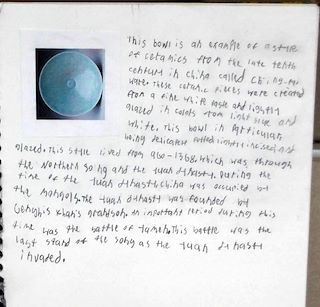 This bowl is an example of a style
of ceramics from the late tenth
century in China called Ching-pai
ware. These ceramic pieces were created
from a fine white paste and lightly
glazed in colors from light blue and
white. This bowl in particular
being delicate called incised and
glazed. This style lived from 960-1368, which was through
the Northern Song and the Yuan dynasty. During the
time of the Yuan dynasty China was occupied by
the mongols. The Yuan dynasty was founded by
Genghis Khan's grandson. An important period during this
time was the battle of Yamen. This battle was the
last stand of the song as the Yuan dynasty
invaded.